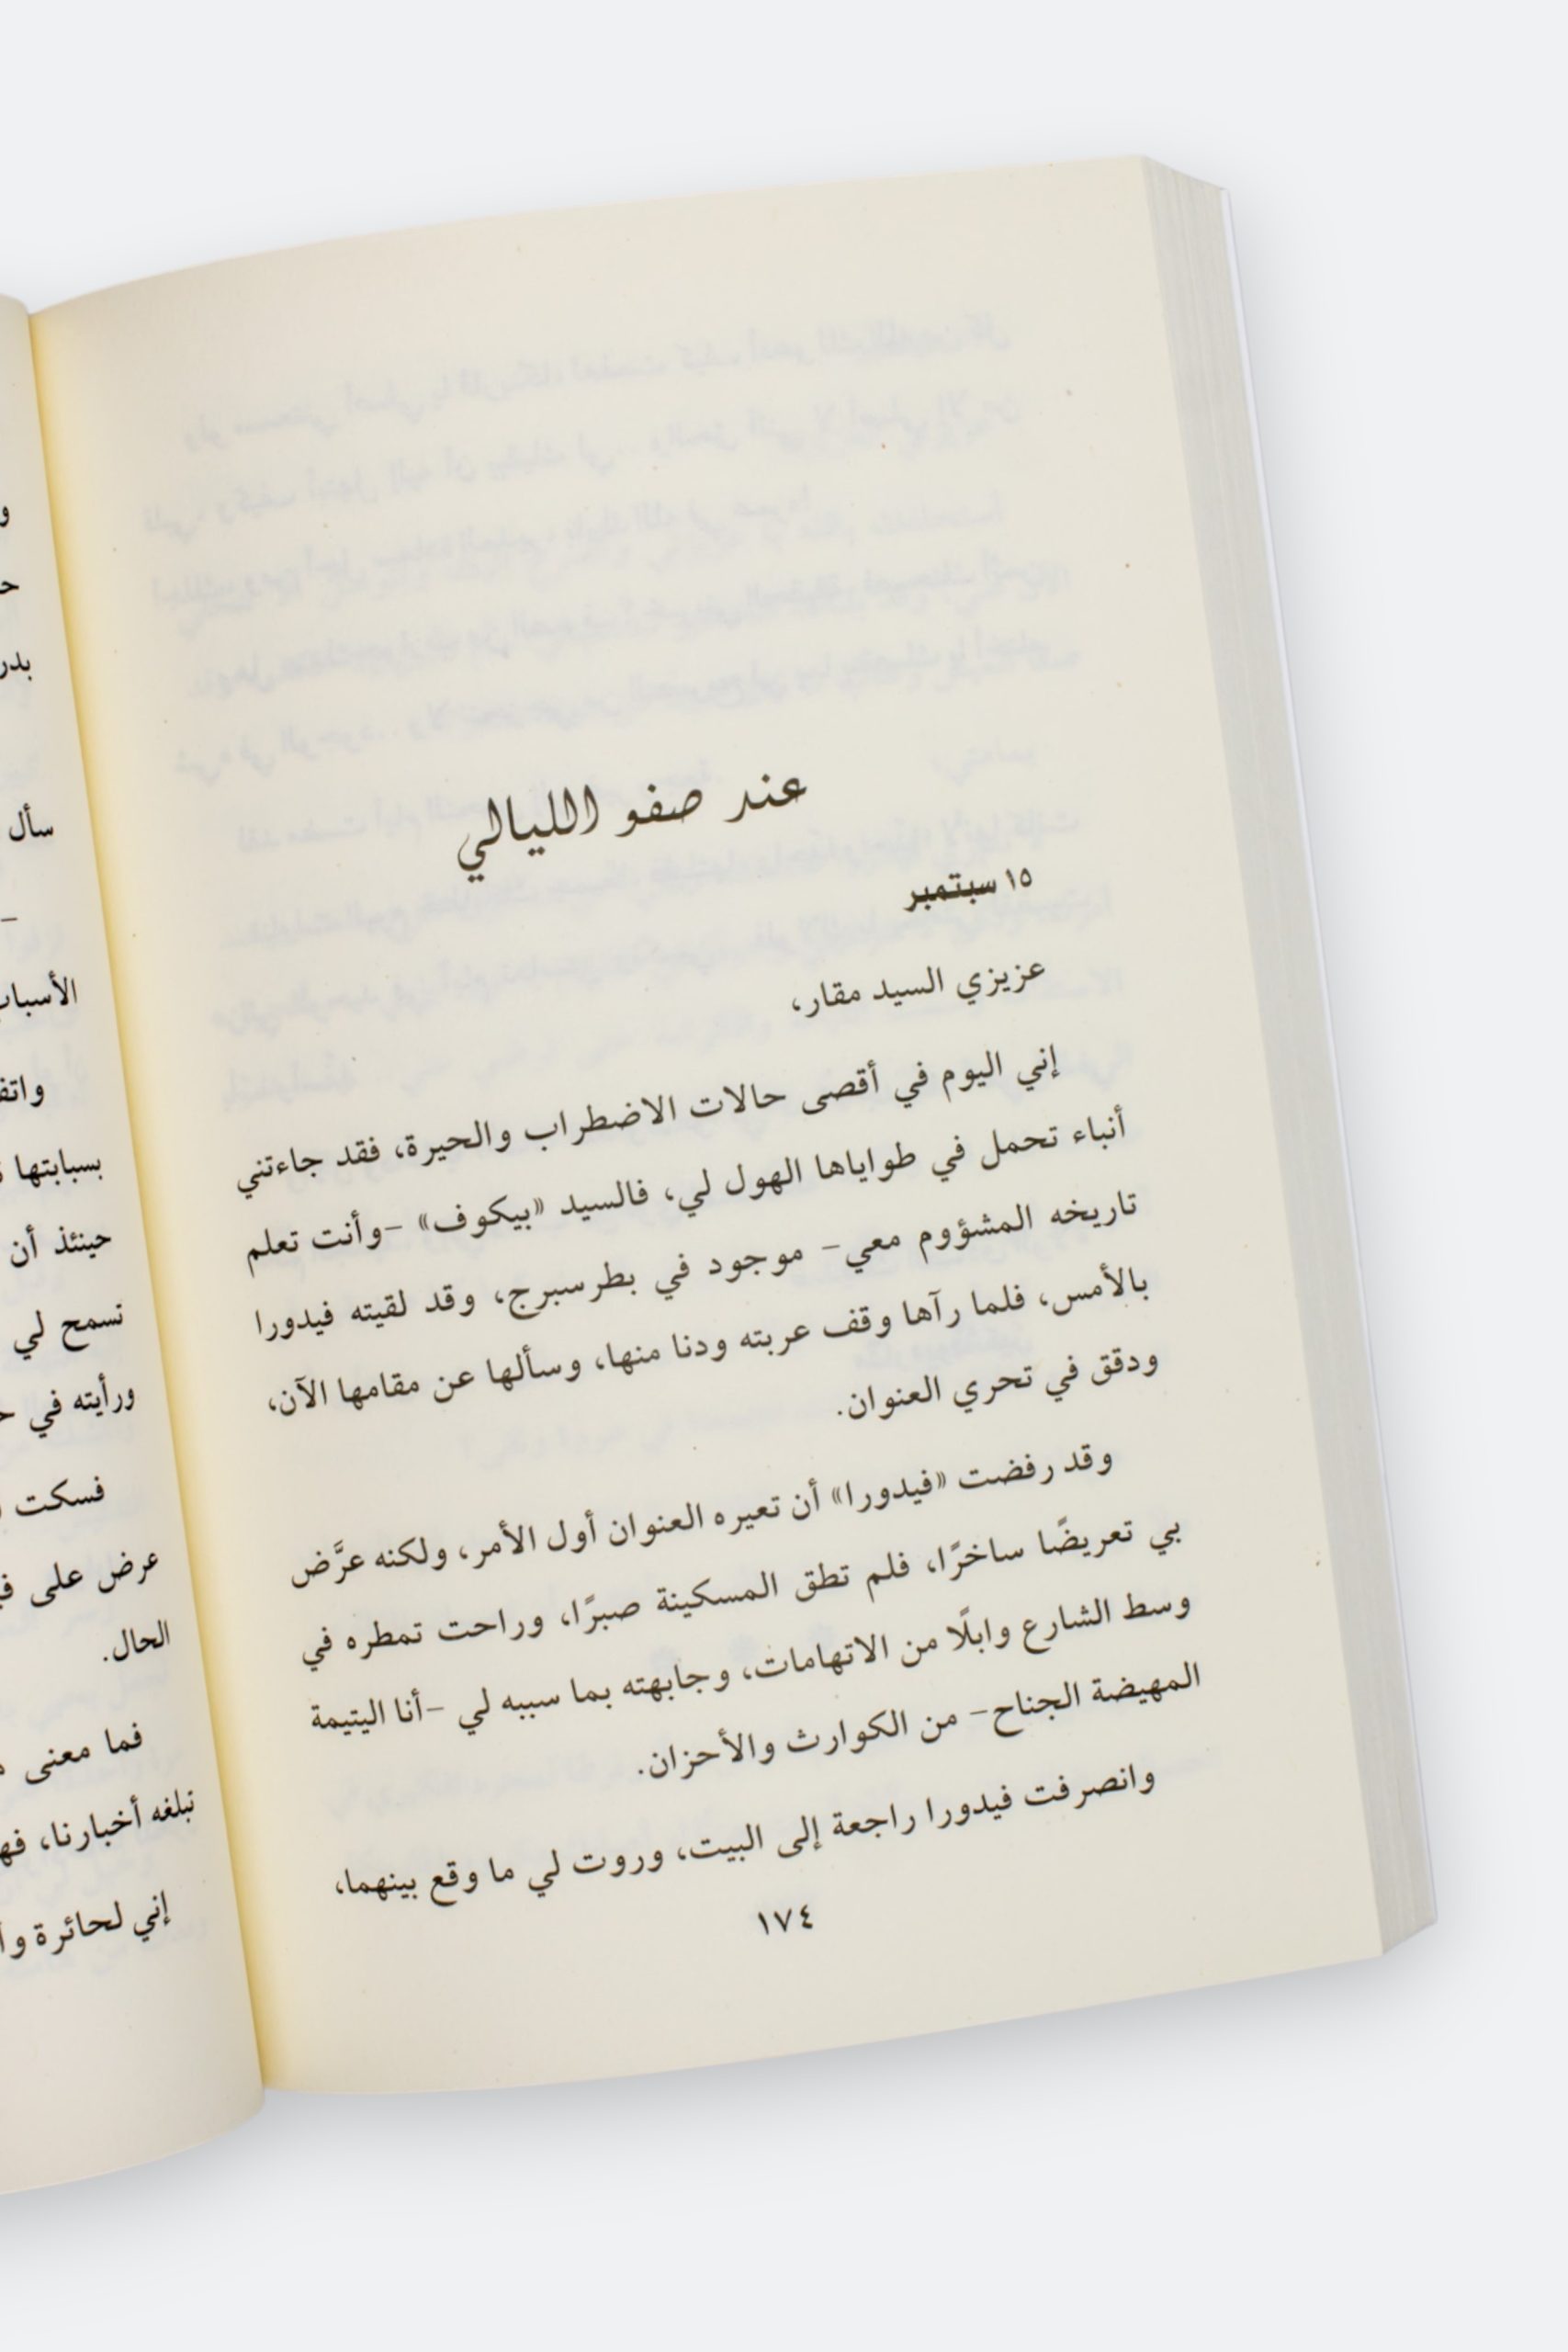 عند صفو الليالي
١٥ سبتمبر
عزيزي السيد مقار،
إني اليوم في أقصى حالات الاضطراب والحيرة، فقد جاءتني
أنباء تحمل في طواياها الهول لي، فالسيد «بيكوف» -وأنت تعلم
تاريخه المشؤوم معي- موجود في بطرسبرج، وقد لقيته فيدورا
بالأمس، فلما رآها وقف عربته ودنا منها، وسألها عن مقامها الآن،
ودقق في تحري العنوان.
وقد رفضت «فيدورا» أن تعيره العنوان أول الأمر، ولكنه عرَّض
بي تعريضًا ساخرًا، فلم تطق المسكينة صبرًا، وراحت تمطره في
وسط الشارع وابلًا من الاتهامات، وجابهته بما سببه لي -أنا اليتيمة
المهيضة الجناح- من الكوارث والأحزان.
وانصرفت فيدورا راجعة إلى البيت، وروت لي ما وقع بينهما،
١٧٤
سأل
-
الأسباب
بسبابتها
حينئذ أن
تسمح لي
ورأيته في
فسكت
عرض على
الحال.
فما معنى
تبلغه أخبارنا،
إني لحائرة